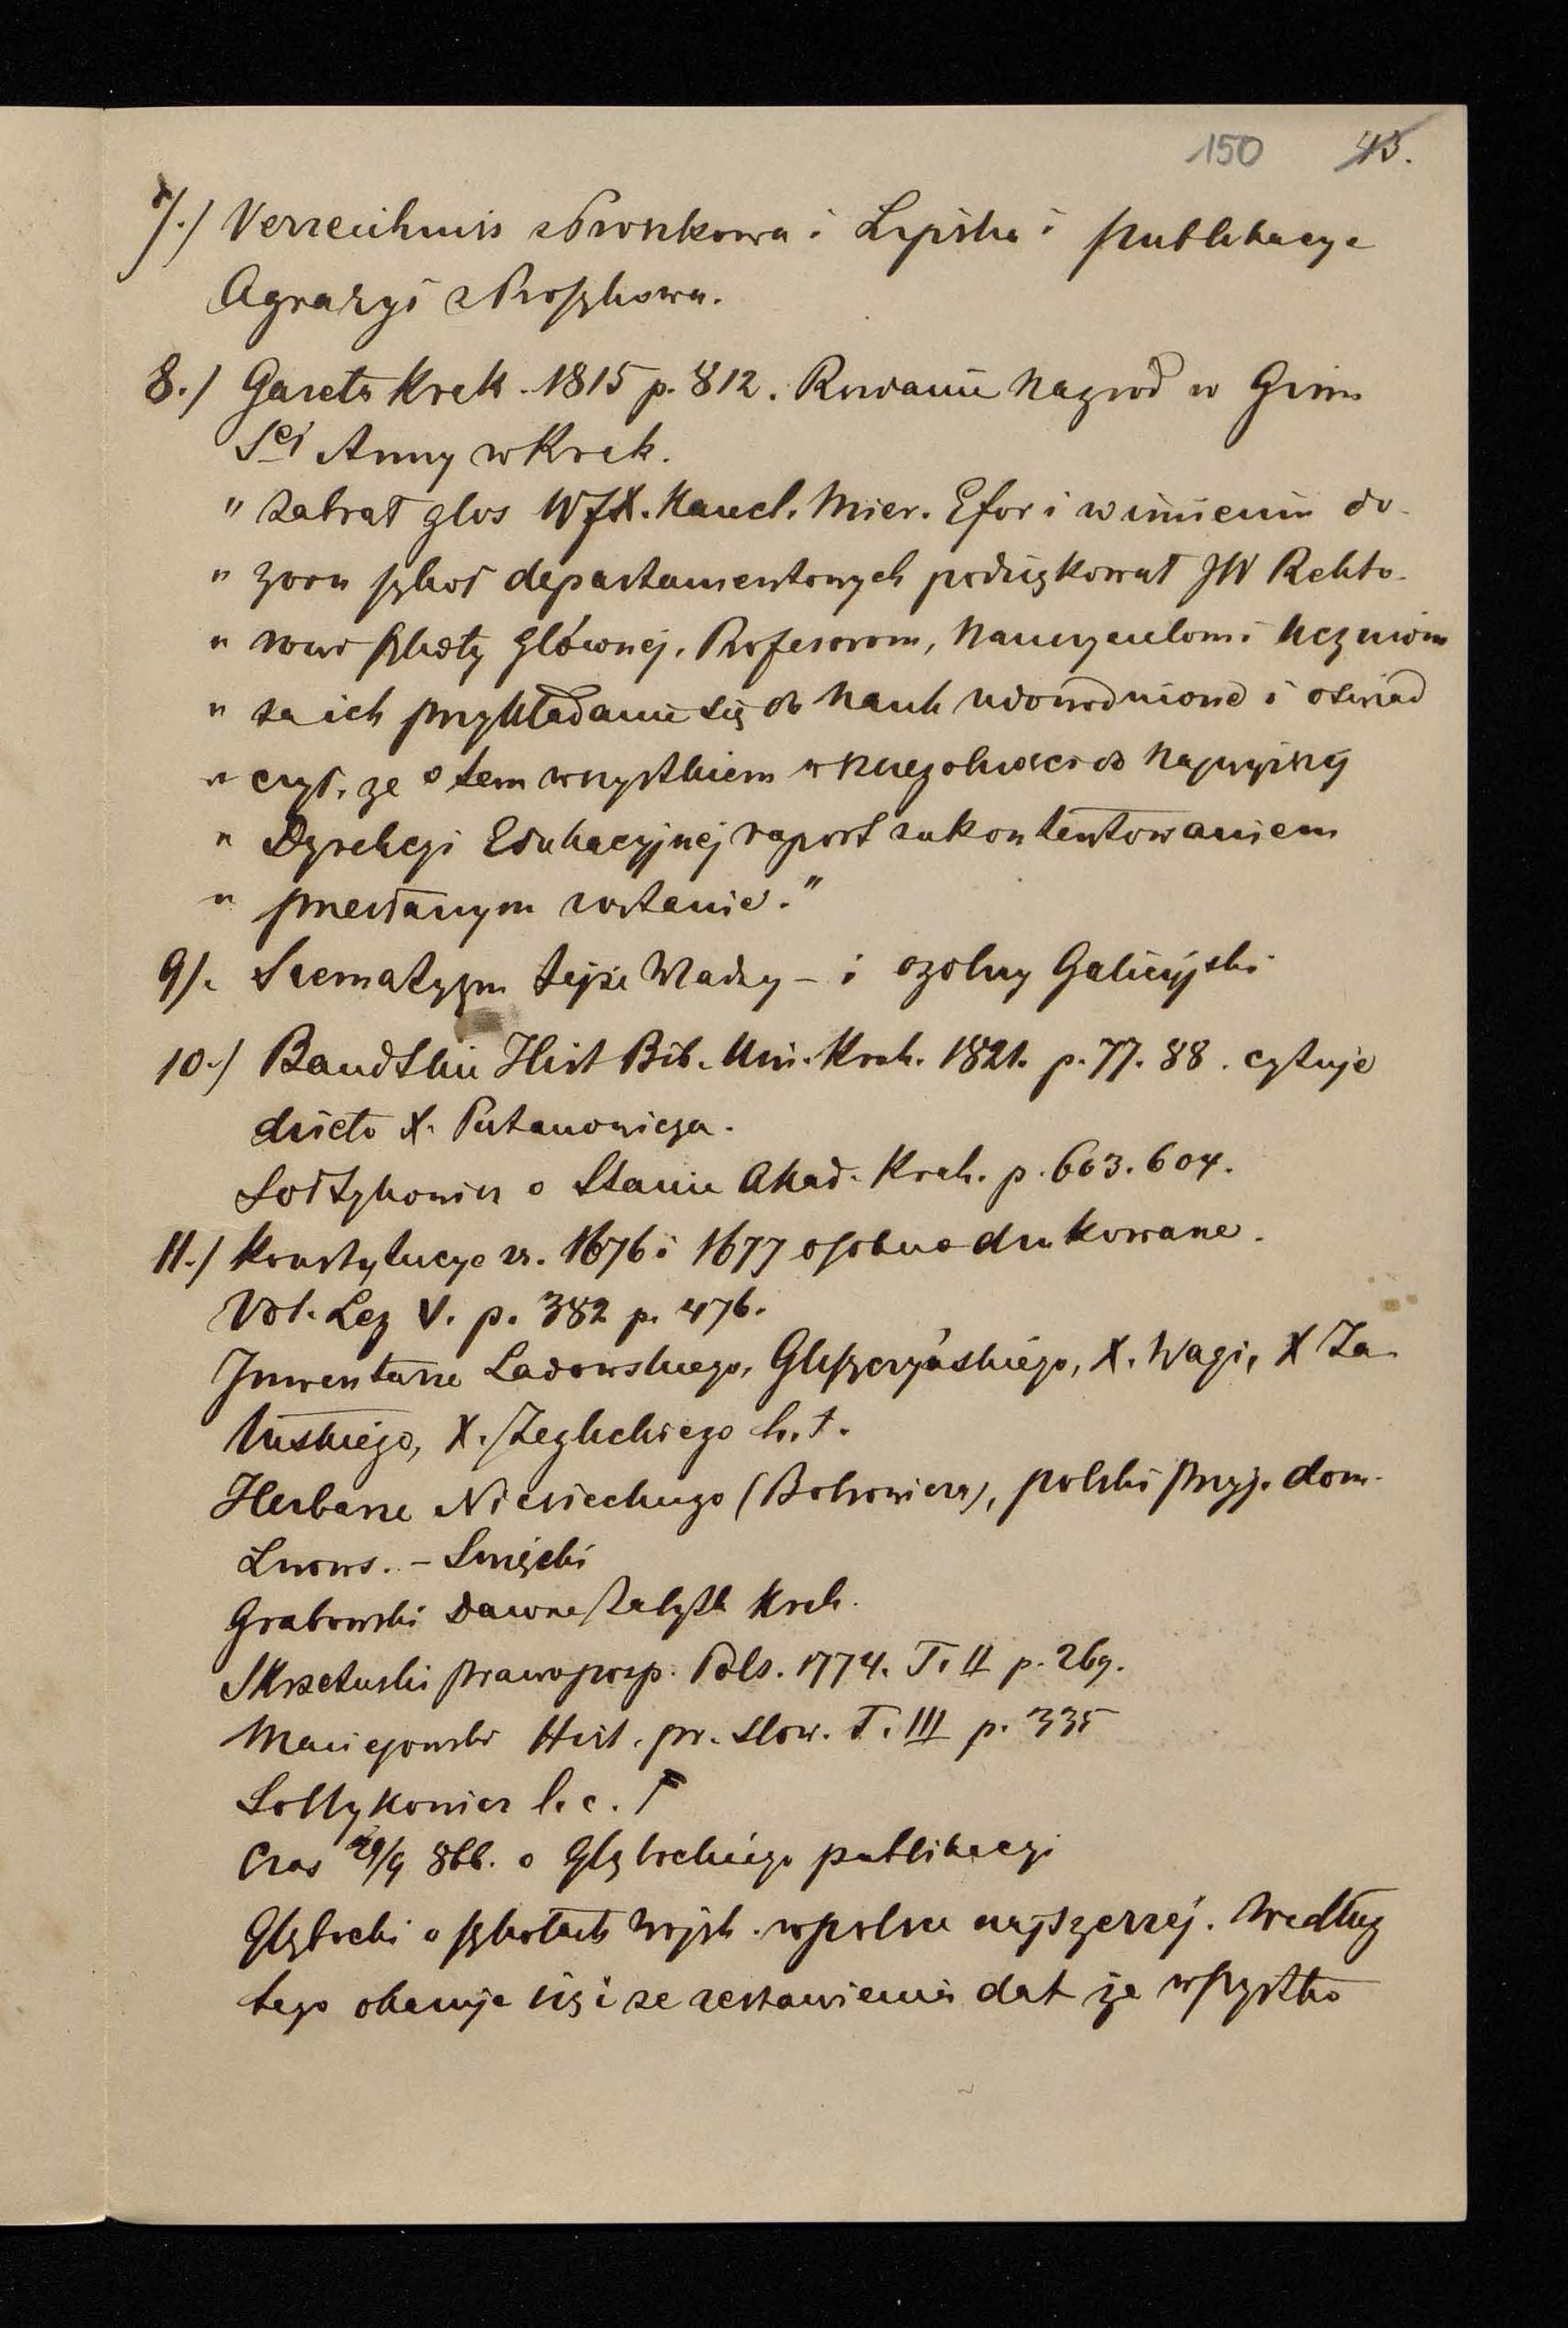 150 45.
7./ Verzeichniss z Proszkowa i Lipska i publikacye
Agrasyi z Proszkowa.
8./ Gazeta Krak. 1815 p. 812. Rozdanie nagród w Gim
Sej Anny w Krak.
" zabrał głos WJX. Kancl. Mier. Efor i w imieniu do-
" zoru szkół departamentowych podziękował JW Rekto-
" rowi szkoły Głównej, Profesorom, Nauczycielom i uczniom
" za ich przykładanie się do nauk udowodnione i oświad
" czył, że o tem wszystkiem w szczególności do najwyższej
" Dyrekcji Edukacyjnej raport z ukontentowaniem
" przesłanym zostanie."
9/. Szematyzm tejże Władzy – i ogólny Galicyjski
10./ Bandtkie Hist Bib. Uni. Krak. 1821. p. 77. 88. cytuje
dzieło X. Putanowicza.
Sołtykowicz o Stanie Akad. Krak. p. 603. 604.
11./ Konstytucye z r. 1676 i 1677 osobno drukowane.
Vol. Leg V. p. 382 p. 476.
Inwentarze Ladowskiego, Gliszczyńskiego, X. Wagi, X Za
łuskiego, X. Żeglickiego h. t.
Herbarze Niesieckiego (Bobrowicza), polski przyj. dom.
Lwows. –
Grabowski Dawne zabytk Krak.
Skrzetuski prawo posp. Pols. 1774. T. II p. 269.
Maciejowski Hist. pr. Slow. T. III p. 335
Soltykowicz l. c.
Czas 29/9 866. o Głębockiego publikacyi
Głębocki o szkołach wojsk. w polsce najszerzej. Według
tego okazuje się i ze zestawienia dat że wszystko